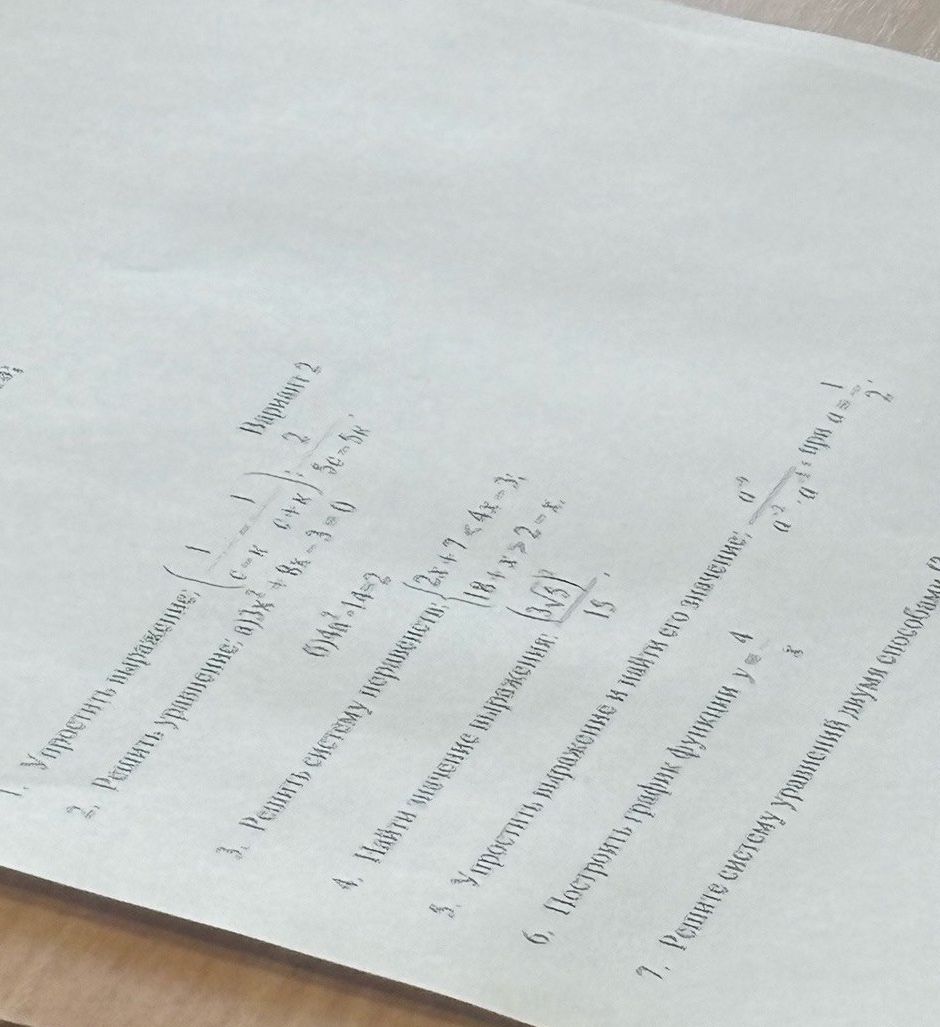 Вариант 2
1. Упростить выражение: (1/(c − к) − 1/(c + к)) : 2/(3c − 5к).
2. Решить уравнение: а) 3х² + 8х − 3 = 0
б) 4х² − 14 = 2
3. Решить систему неравенств: {2х + 7 < 4х − 3;
18 + х > 2 − х.
4. Найти значение выражения: (3√5)²/15.
5. Упростить выражение и найти его значение: а⁻⁹/(а⁻² · а⁻⁵) при а = 1/2.
6. Построить график функции у = 4/х
7. Решите систему уравнений двумя способами